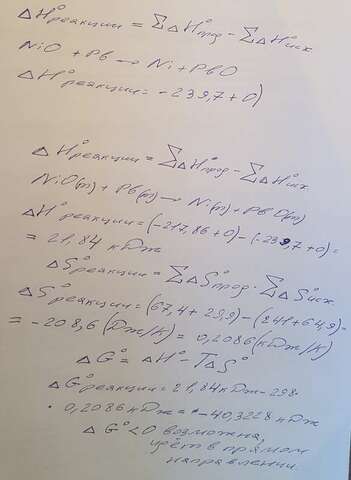 ΔH°реакции = ΣΔH°прод - ΣΔH°исх
NiO + Pb → Ni + PbO
ΔH°реакции = -239,7 + 0)
ΔH°реакции = ΣΔH°прод - ΣΔH°исх
NiO(т) + Pb(т) → Ni(т) + PbO(т)
ΔH°реакции = (-217,86 + 0) - (-239,7 + 0) =
= 21,84 кДж
ΔS°реакции = ΣΔS°прод - ΣΔS°исх
ΔS°реакции = (67,4 + 29,9) - (241 + 64,9) =
= -208,6 (Дж/К) = 0,2086 (кДж/К)
ΔG° = ΔH° - TΔS°
ΔG°реакции = 21,84 кДж - 298 ·
· 0,2086 кДж = -40,3228 кДж
ΔG° < 0 возможна,
идёт в прямом
направлении.